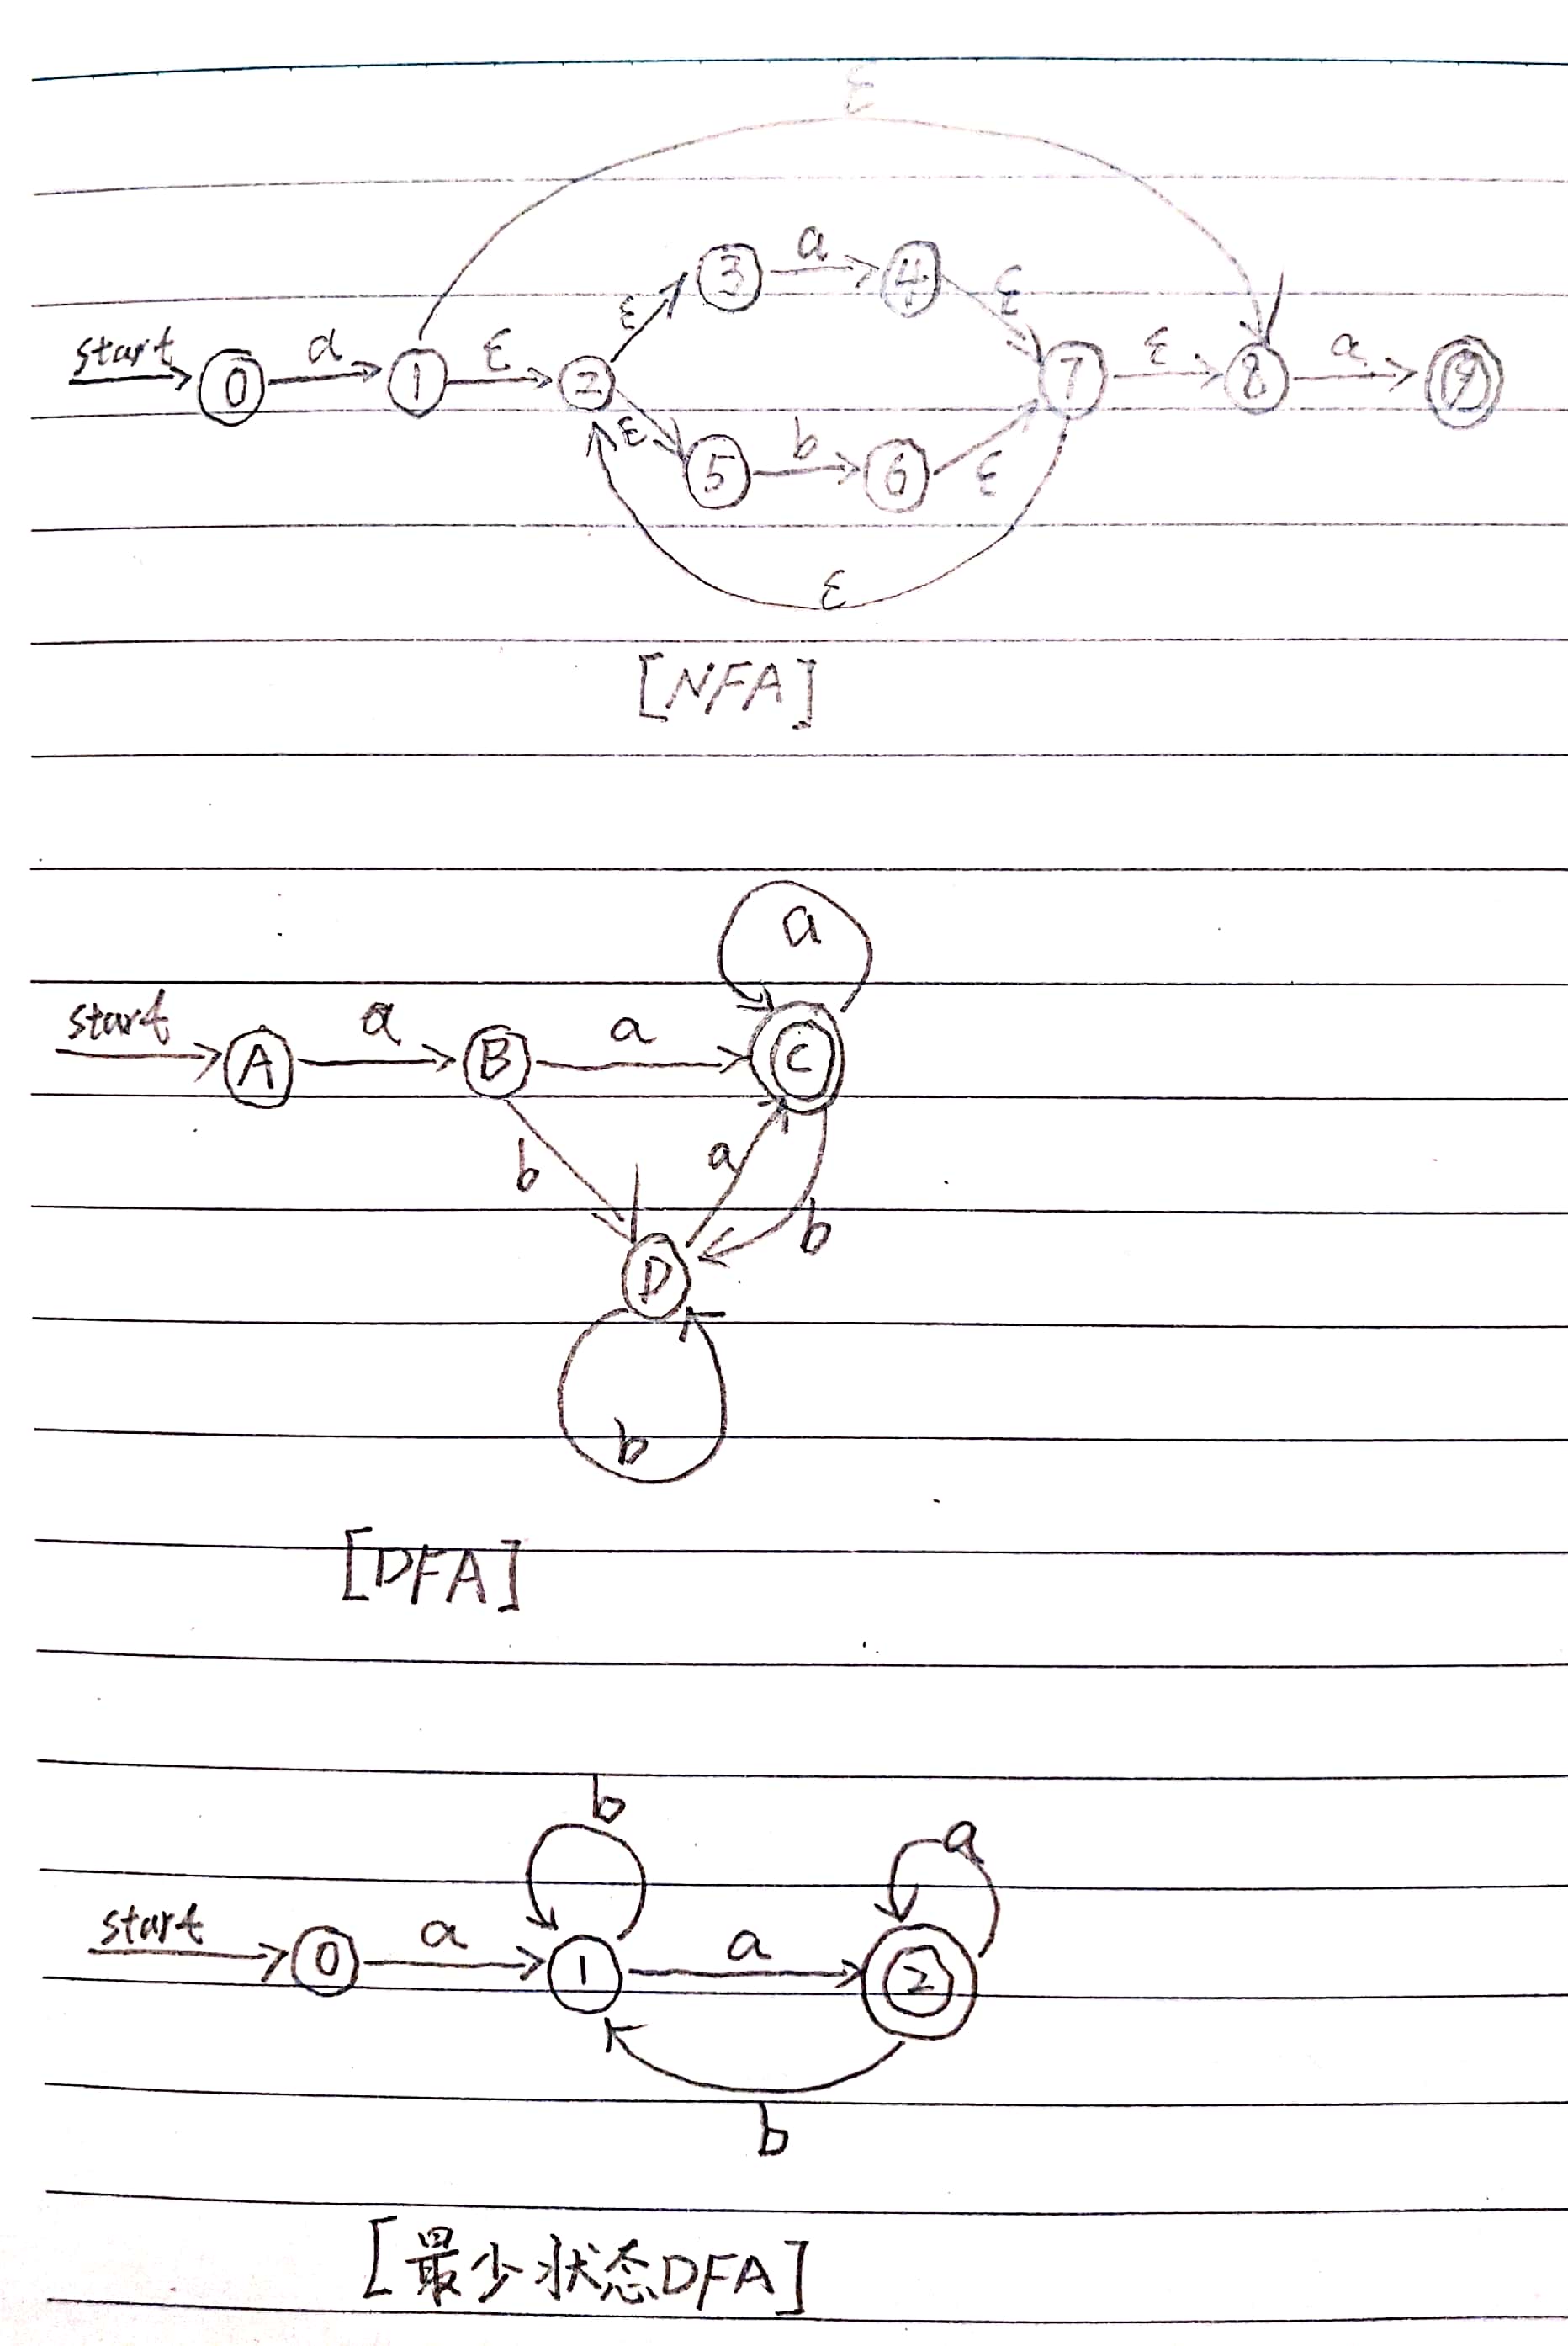 ε
start 0 a 1 ε 2 ε 3 a 4 ε 7 ε 8 a 9
ε 5 b 6 ε
ε
[NFA]
a
start A a B a C
b a b
D
b
[DFA]
b a
start 0 a 1 a 2
b
[最少状态DFA]